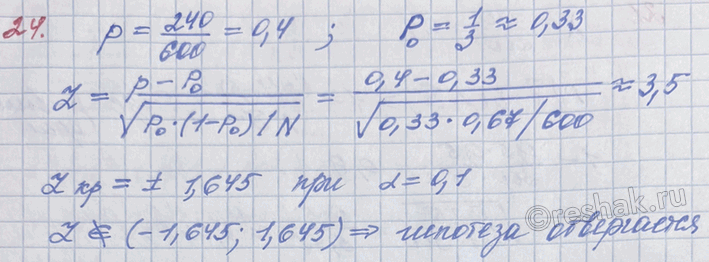 24. p = 240/600 = 0,4 ; P₀ = 1/3 ≈ 0,33
Z = (p − P₀)/√(P₀·(1−P₀)/N) = (0,4 − 0,33)/√(0,33·0,67/600) ≈ 3,5
Z кр = ± 1,645 при α = 0,1
Z ∉ (−1,645; 1,645) ⇒ гипотеза отвергается
©reshak.ru